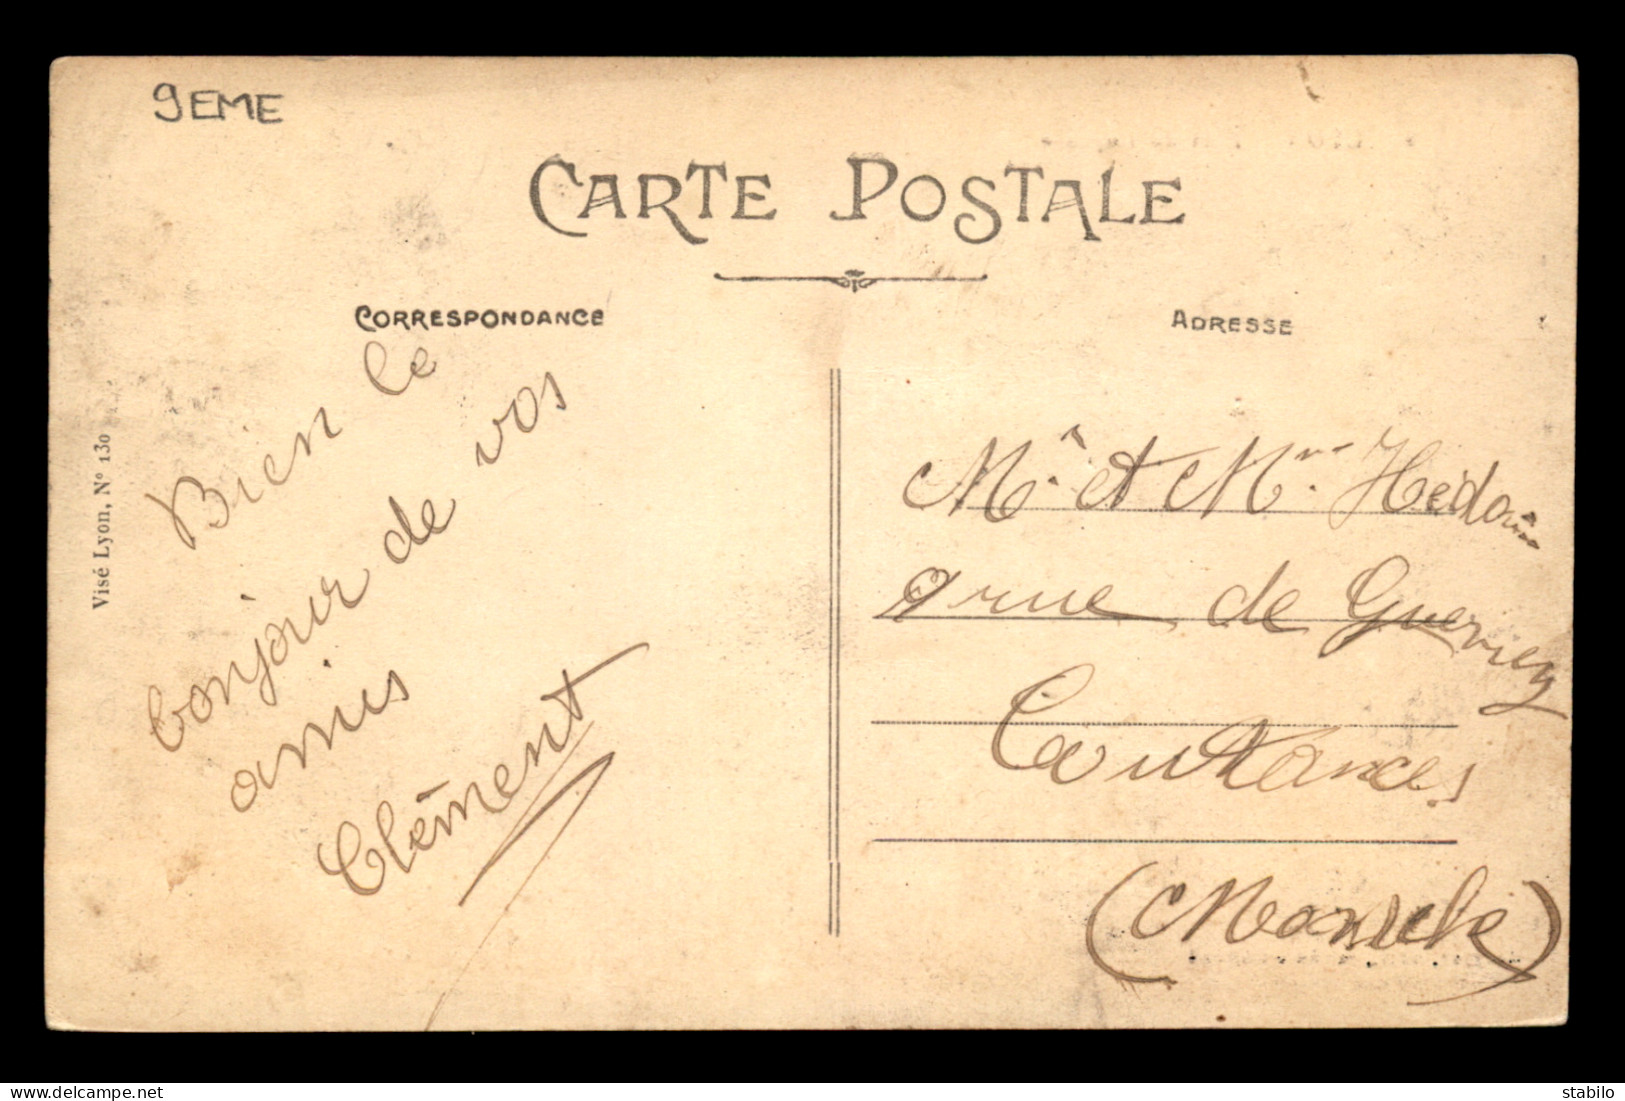 9EME
CARTE POSTALE
CORRESPONDANCE
Bien le
bonjour de vos
amis
Clément
Visé Lyon, N° 130
ADRESSE
Mr et Mme Hédouin
9 rue de
Coutances
(Manche)
delcampe.net
stabilo